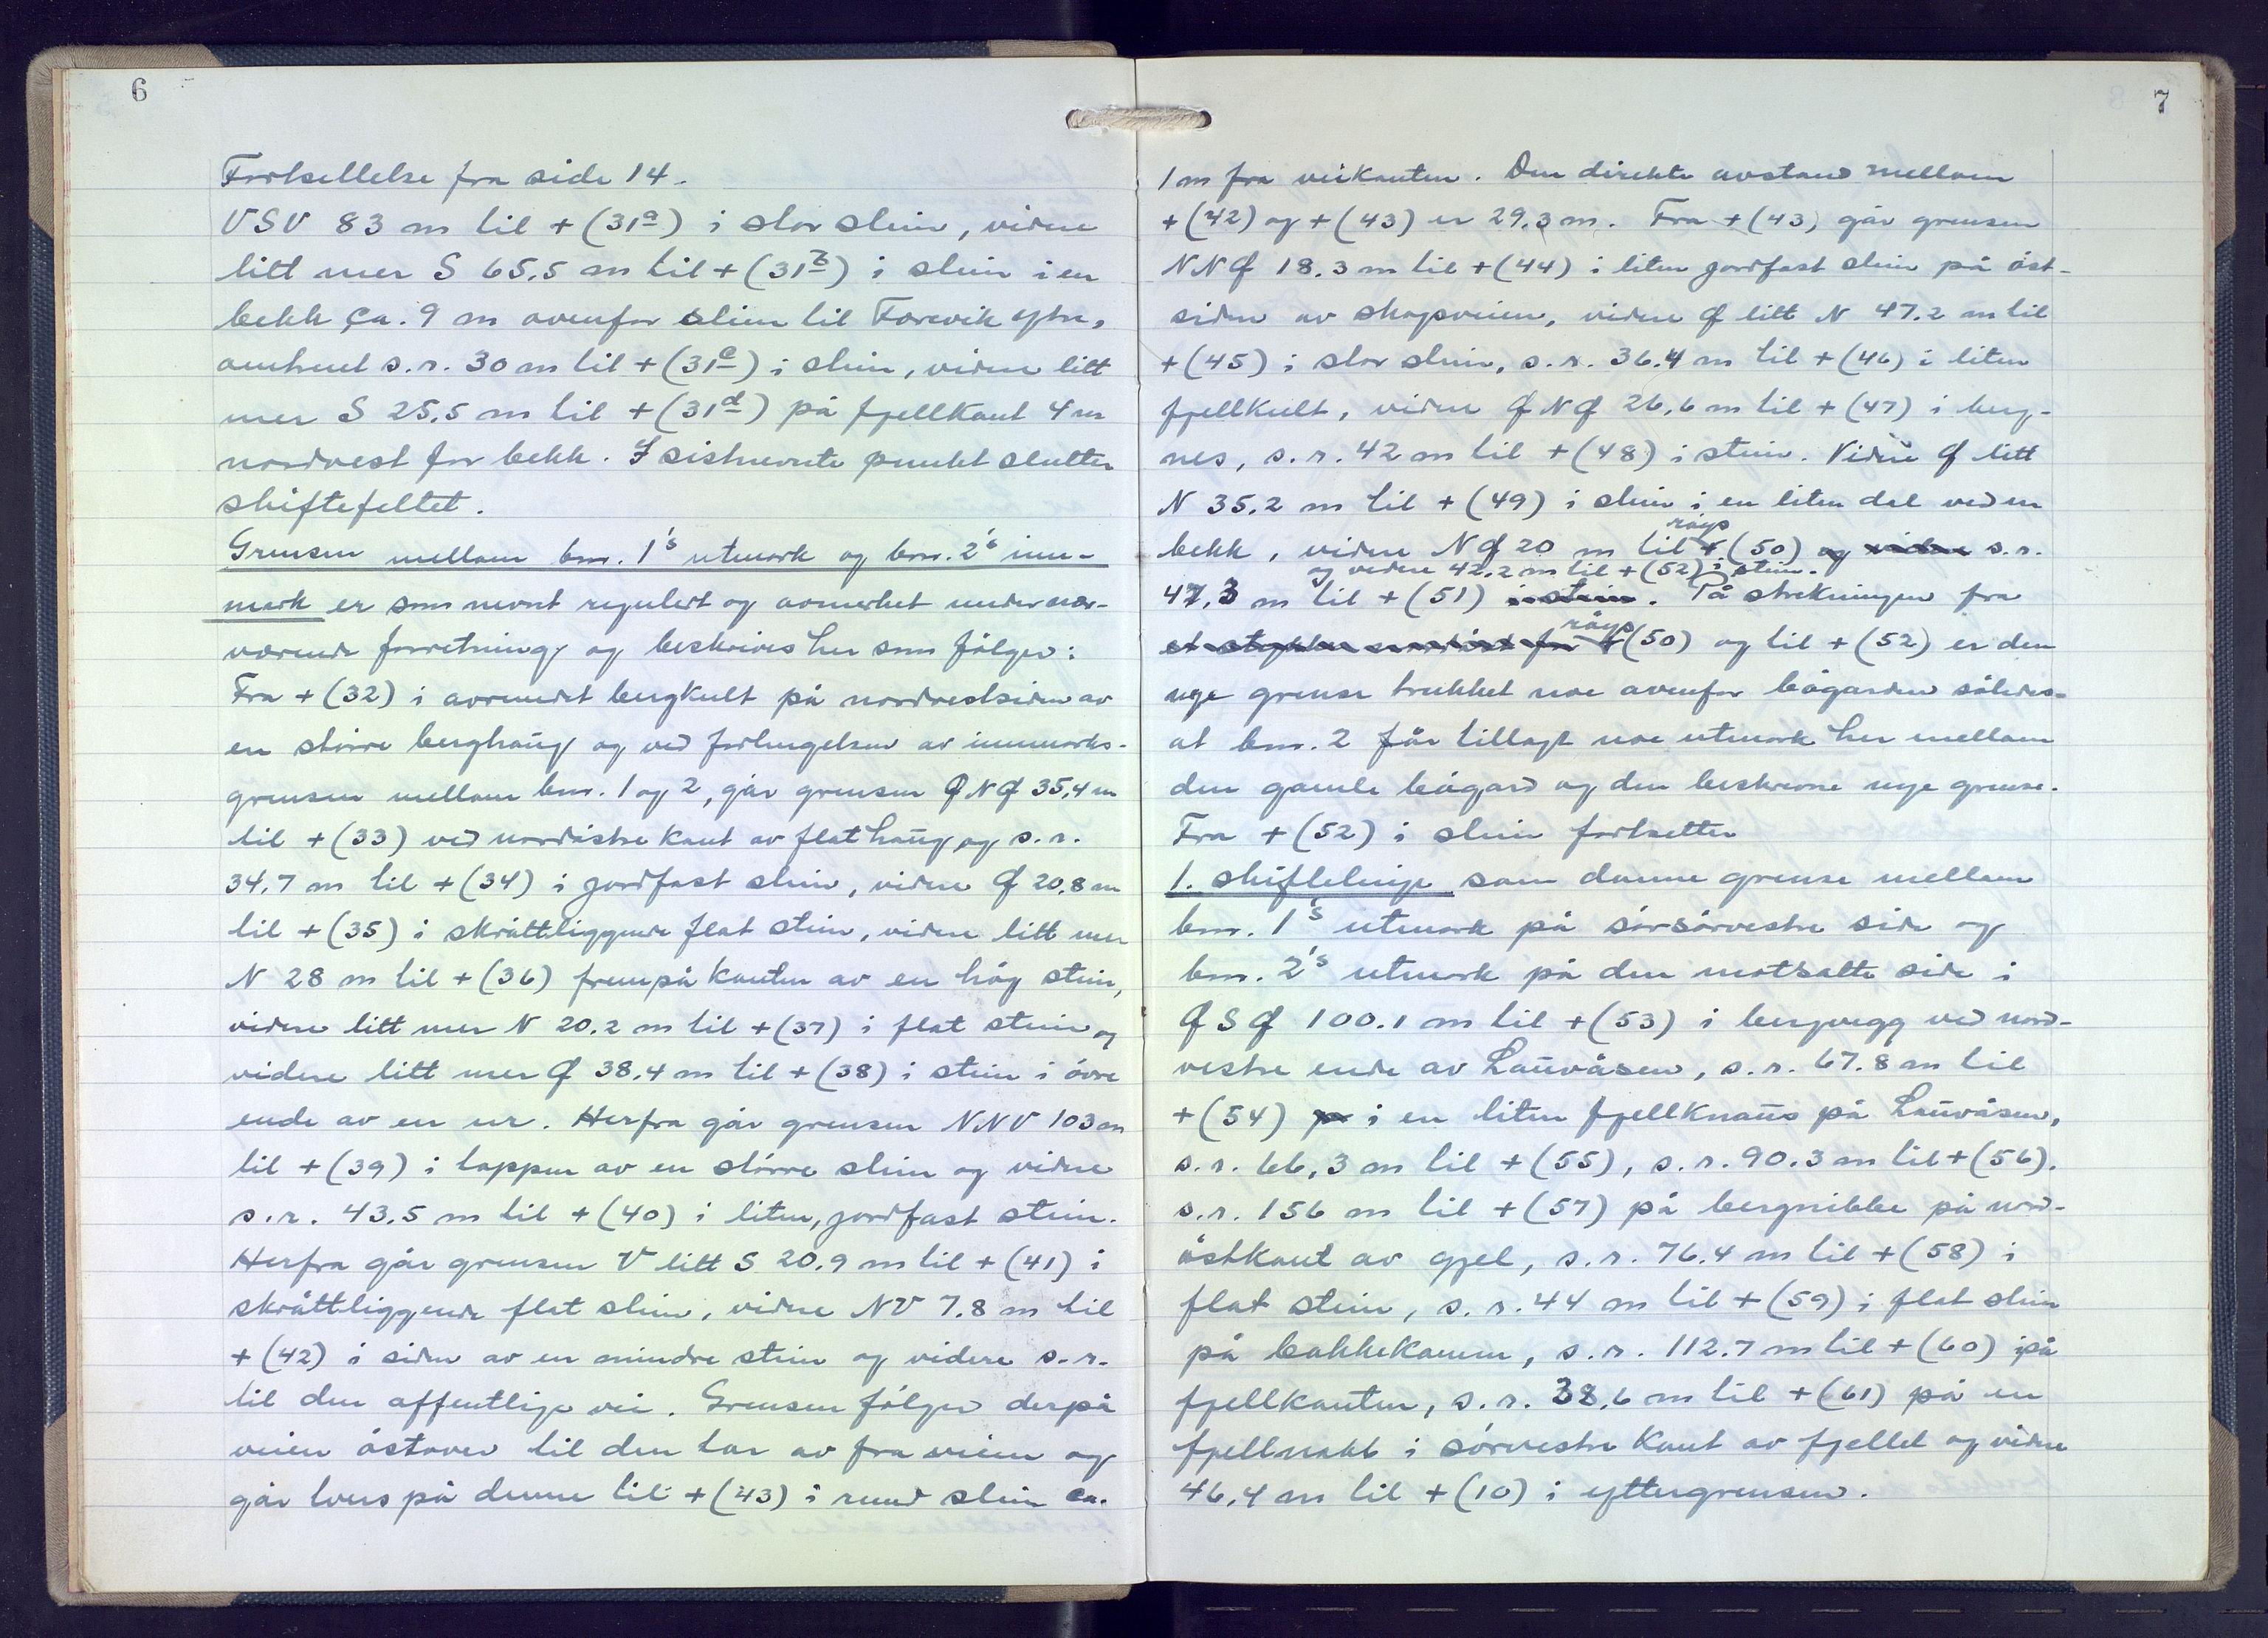 6
Fortsettelse fra side 14.
VSV 83 m til + (31a) i stor stein, videre
litt mer S 65,5 m til + (31b) i stein i en
bekk ca. 9 m ovenfor stien til Forevik ytre,
omtrent s.r. 30 m til + (31c) i stein, videre litt
mer S 25,5 m til + (31d) på fjellkant 4 m
nordvest for bekk. I sistnevnte punkt slutter
skiftefeltet.
Grensen mellom bnr. 1's utmark og bnr. 2's inn-
mark er som nevnt regulert og avmerket under nær-
værende forretning og beskrives her som fölger:
Fra + (32) i avrundet bergkult på nordvestsiden av
en större berghaug og ved forlengelsen av innmarks-
grensen mellom bnr. 1 og 2, går grensen ØNØ 35,4 m
til + (33) ved nordöstre kant av flat haug og s.r.
34,7 m til + (34) i jordfast stein, videre Ø 20,8 m
til + (35) i skråttliggende flat stein, videre litt mer
N 28 m til + (36) frempå kanten av en hög stein,
videre litt mer N 20.2 m til + (37) i flat stein og
videre litt mer Ø 38,4 m til + (38) i stein i övre
ende av en ur. Herfra går grensen NNV 103 m
til + (39) i toppen av en större stein og videre
s.r. 43,5 m til + (40) i liten, jordfast stein.
Herfra går grensen V litt S 20.9 m til + (41) i
skråttliggende flat stein, videre NV 7.8 m til
+ (42) i siden av en mindre stein og videre s.r.
til den offentlige vei. Grensen fölger derpå
veien östover til den tar av fra veien og
går tvers på denne til + (43) i rund stein ca.
7
1 m fra veikanten. Den direkte avstand mellom
+ (42) og + (43) er 29,3 m. Fra + (43) går grensen
NNØ 18.3 m til + (44) i liten jordfast stein på öst-
siden av skogsveien, videre Ø litt N 47.2 m til
+ (45) i stor stein, s.r. 36.4 m til + (46) i liten
fjellkult, videre ØNØ 26,6 m til + (47) i berg-
nes, s.r. 42 m til + (48) i stein. Videre Ø litt
N 35.2 m til + (49) i stein i en liten dal ved en
röys
bekk, videre NØ 20 m til + (50) og videre s.r.
og videre 42.2 m til + (52) i stein.
47,3 m til + (51) i stein. På strekningen fra
röys
et stykke nordöst for + (50) og til + (52) er den
nye grense trukket noe ovenfor bögarden således
at bnr. 2 får tillagt noe utmark her mellom
den gamle bögard og den beskrevne nye grense.
Fra + (52) i stein fortsetter
1. skiftelinje som danner grense mellom
bnr. 1's utmark på sörsörvestre side og
bnr. 2's utmark på den motsatte side i
ØSØ 100.1 m til + (53) i bergvegg ved nord-
vestre ende av Lauvåsen, s.r. 67.8 m til
+ (54) på i en liten fjellknaus på Lauvåsen,
s.r. 66,3 m til + (55), s.r. 90.3 m til + (56).
s.r. 156 m til + (57) på bergnibbe på nord-
östkant av gjel, s.r. 76.4 m til + (58) i
flat stein, s.r. 44 m til + (59) i flat stein
på bakkekammen, s.r. 112.7 m til + (60) på
fjellkanten, s.r. 38,6 m til + (61) på en
fjellnabb i sörvestre kant av fjellet og videre
46,4 m til + (10) i yttergrensen.